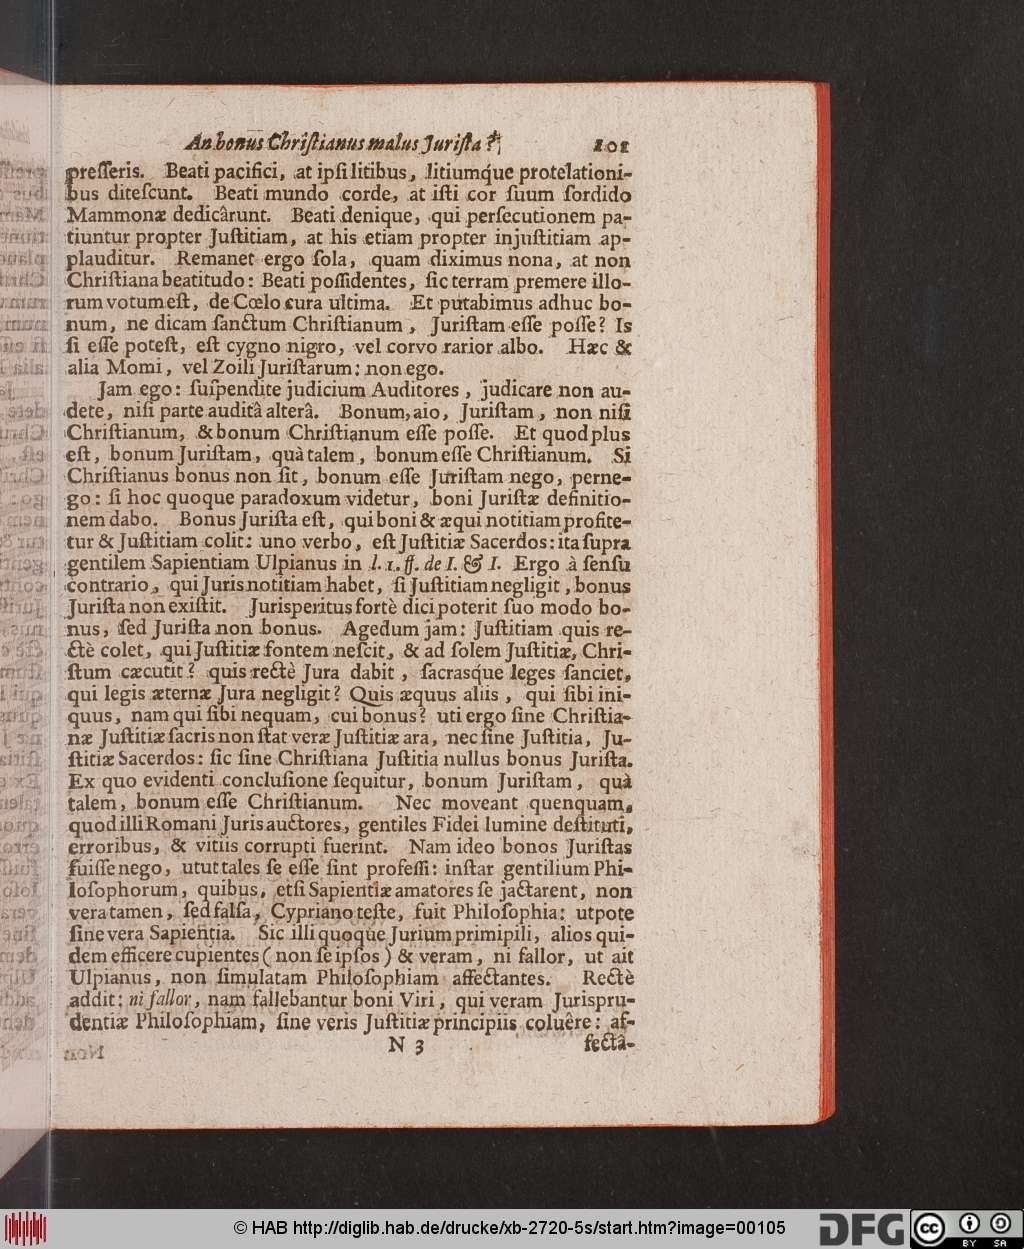 An bonus Chriſtianus malus Juriſta? 101
preſſeris. Beati pacifici, at ipſi litibus, litiumq́ue protelationi-
bus diteſcunt. Beati mundo corde, at iſti cor ſuum ſordido
Mammonæ dedicârunt. Beati denique, qui perſecutionem pa-
tiuntur propter Juſtitiam, at his etiam propter injuſtitiam ap-
plauditur. Remanet ergo ſola, quam diximus nona, at non
Chriſtiana beatitudo: Beati poſſidentes, ſic terram premere illo-
rum votum eſt, de Cœlo cura ultima. Et putabimus adhuc bo-
num, ne dicam ſanctum Chriſtianum, Juriſtam eſſe poſſe? Is
ſi eſſe poteſt, eſt cygno nigro, vel corvo rarior albo. Hæc &
alia Momi, vel Zoili Juriſtarum: non ego.
Jam ego: ſuſpendite judicium Auditores, judicare non au-
dete, niſi parte auditâ alterâ. Bonum, aio, Juriſtam, non niſi
Chriſtianum, & bonum Chriſtianum eſſe poſſe. Et quod plus
eſt, bonum Juriſtam, quà talem, bonum eſſe Chriſtianum. Si
Chriſtianus bonus non ſit, bonum eſſe Juriſtam nego, perne-
go: ſi hoc quoque paradoxum videtur, boni Juriſtæ definitio-
nem dabo. Bonus Juriſta eſt, qui boni & æqui notitiam profite-
tur & Juſtitiam colit: uno verbo, eſt Juſtitiæ Sacerdos: ita ſupra
gentilem Sapientiam Ulpianus in l. 1. ff. de I. & I. Ergo à ſenſu
contrario, qui Juris notitiam habet, ſi Juſtitiam negligit, bonus
Juriſta non exiſtit. Jurisperitus fortè dici poterit ſuo modo bo-
nus, ſed Juriſta non bonus. Agedum jam: Juſtitiam quis re-
ctè colet, qui Juſtitiæ fontem neſcit, & ad ſolem Juſtitiæ, Chri-
ſtum cæcutit? quis rectè Jura dabit, ſacrasq́ue leges ſanciet,
qui legis æternæ Jura negligit? Quis æquus aliis, qui ſibi ini-
quus, nam qui ſibi nequam, cui bonus? uti ergo ſine Chriſtia-
næ Juſtitiæ ſacris non ſtat veræ Juſtitiæ ara, nec ſine Juſtitia, Ju-
ſtitiæ Sacerdos: ſic ſine Chriſtiana Juſtitia nullus bonus Juriſta.
Ex quo evidenti concluſione ſequitur, bonum Juriſtam, quà
talem, bonum eſſe Chriſtianum. Nec moveant quenquam,
quod illi Romani Juris auctores, gentiles Fidei lumine deſtituti,
erroribus, & vitiis corrupti fuerint. Nam ideo bonos Juriſtas
fuiſſe nego, utut tales ſe eſſe ſint profeſſi: inſtar gentilium Phi-
loſophorum, quibus, etſi Sapientiæ amatores ſe jactarent, non
vera tamen, ſed falſa, Cypriano teſte, fuit Philoſophia: utpote
ſine vera Sapientia. Sic illi quoque Jurium primipili, alios qui-
dem efficere cupientes (non ſe ipſos) & veram, ni fallor, ut ait
Ulpianus, non ſimulatam Philoſophiam affectantes. Rectè
addit: ni fallor, nam fallebantur boni Viri, qui veram Jurispru-
dentiæ Philoſophiam, ſine veris Juſtitiæ principiis coluêre: af-
N 3 fectâ-
© HAB http://diglib.hab.de/drucke/xb-2720-5s/start.htm?image=00105
DFG
cc BY SA